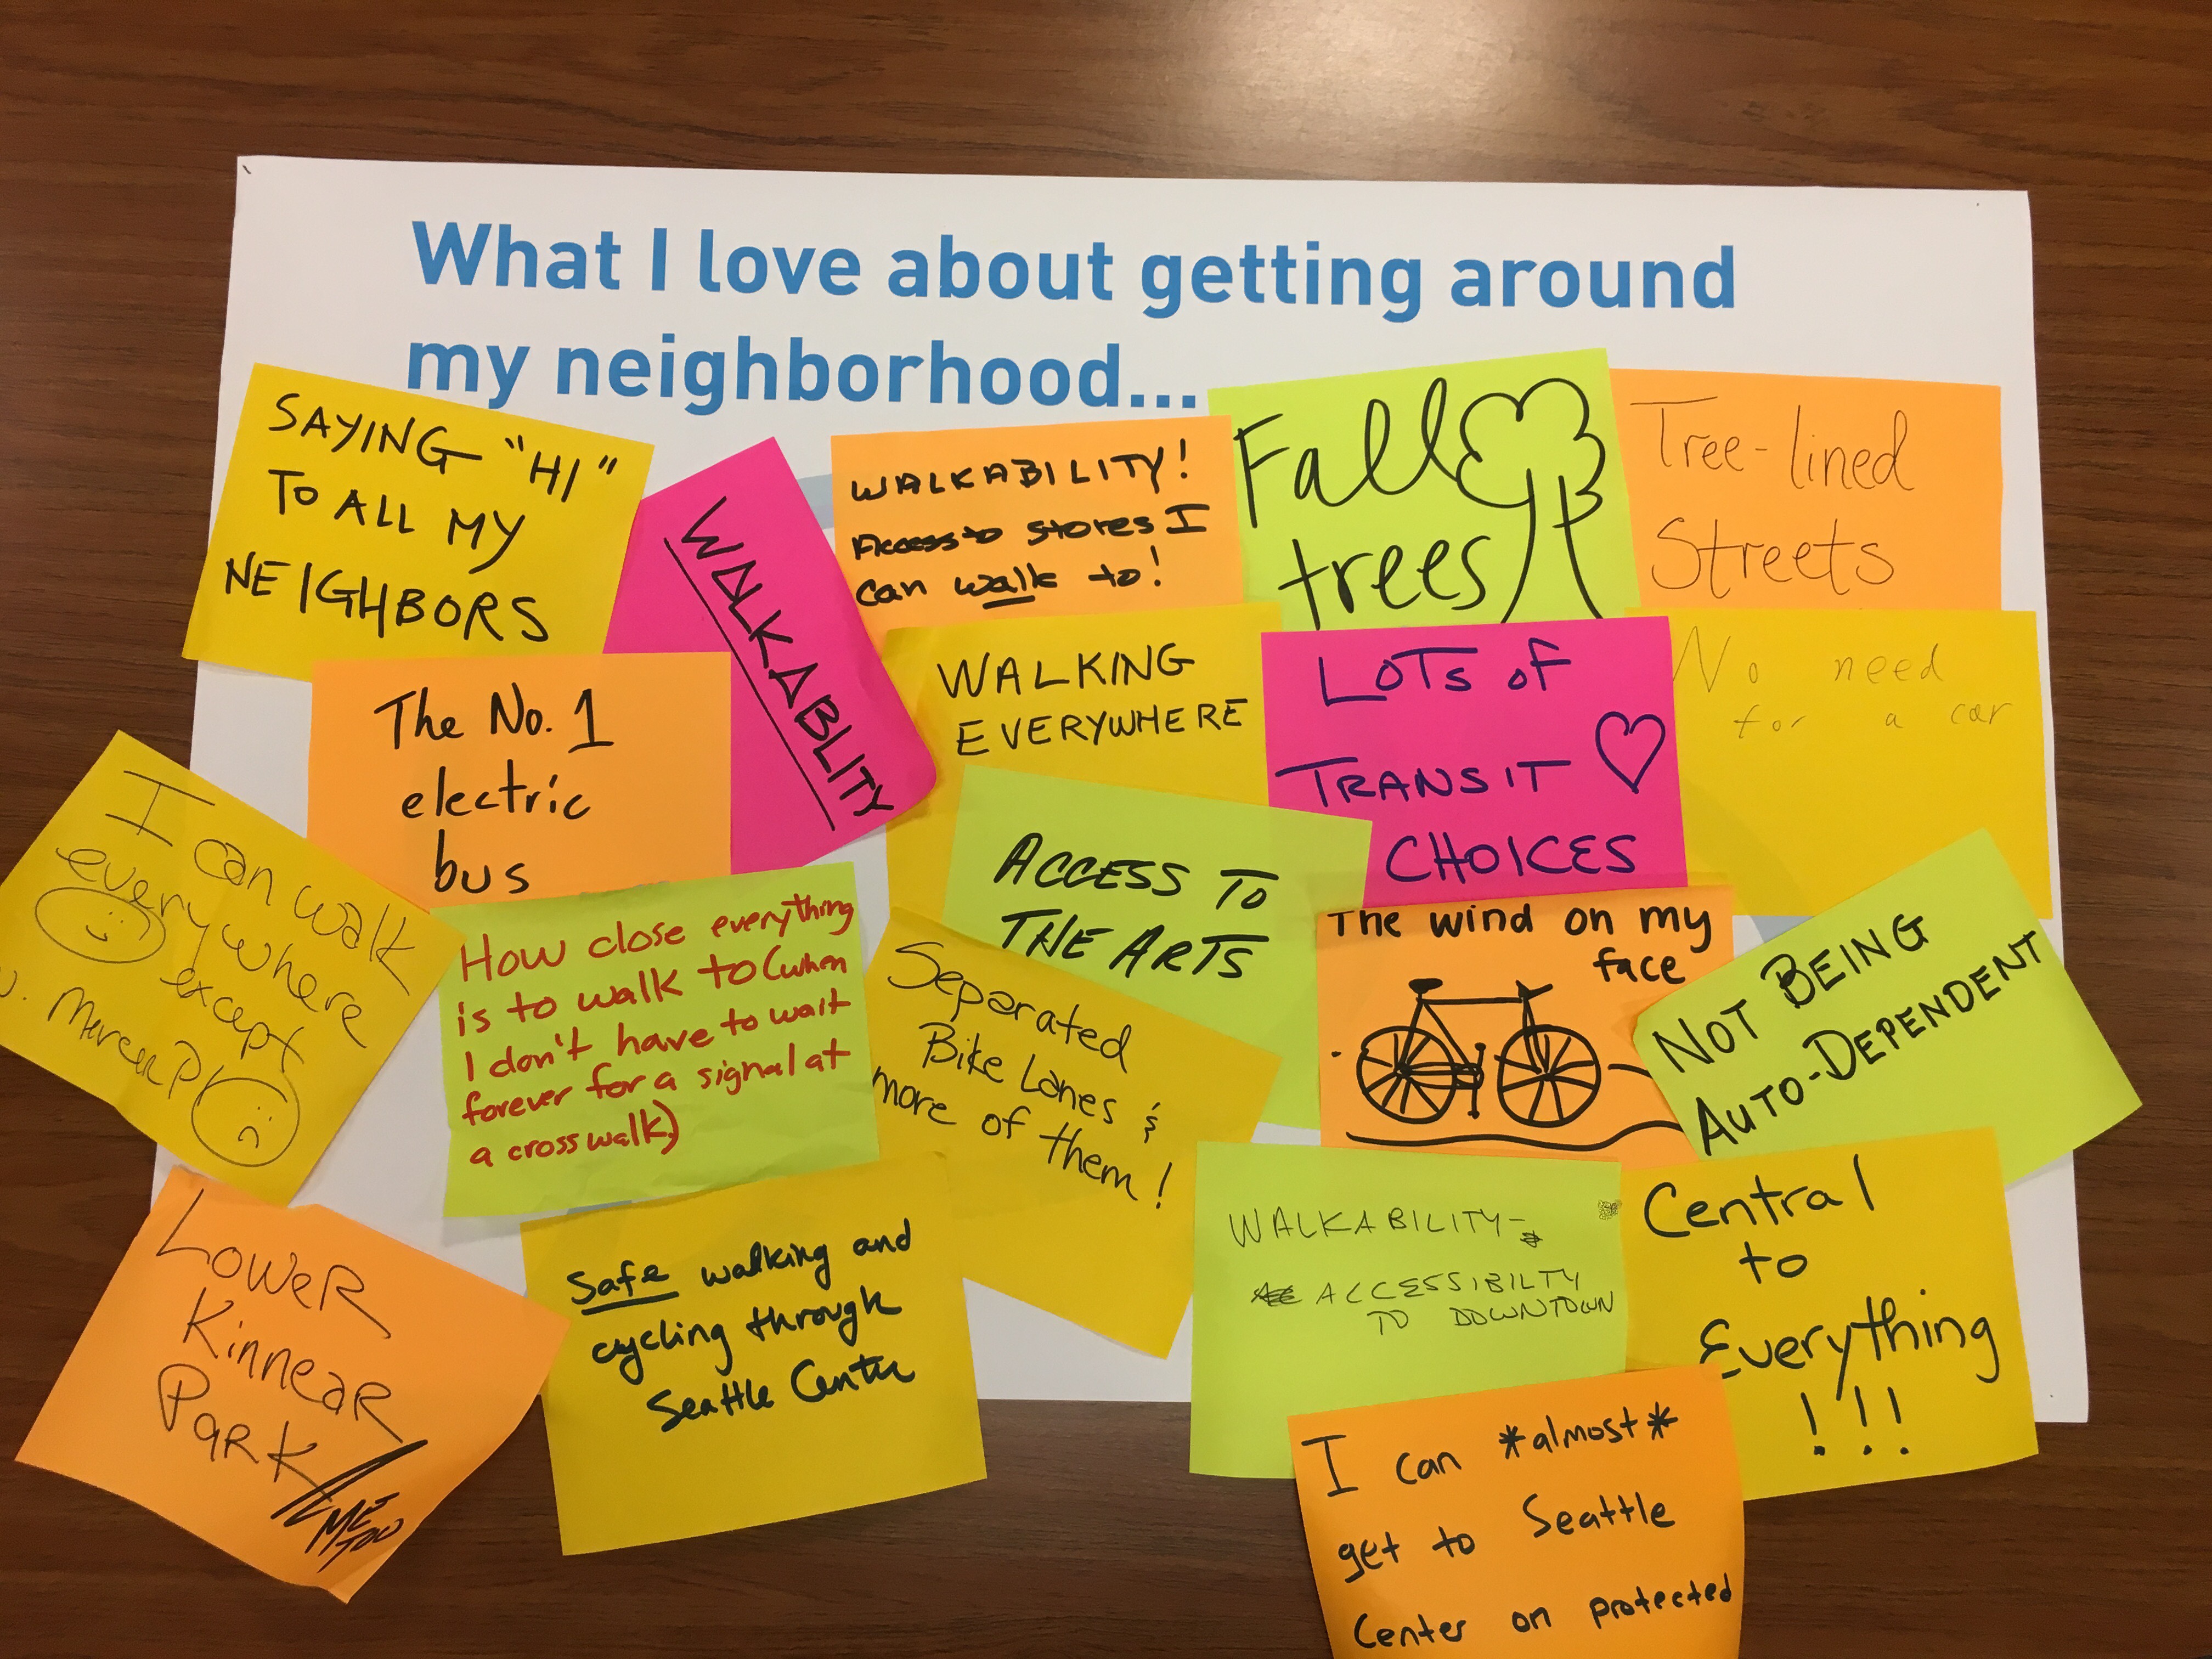 What I love about getting around
my neighborhood...
SAYING "HI"
TO ALL MY
NEIGHBORS
WALKABLITY
WALKABILITY!
Access to stores I
can walk to!
Fall
trees
Tree-lined
Streets
The No. 1
electric
bus
WALKING
EVERYWHERE
LOTS OF
TRANSIT
CHOICES
No need
for a car
I can walk
everywhere
except
w. Mercer Pl
How close everything
is to walk to (when
I don't have to wait
forever for a signal at
a crosswalk)
ACCESS TO
THE ARTS
Separated
Bike Lanes &
more of them!
The wind on my
face
NOT BEING
AUTO-DEPENDENT
LOWER
KinneaR
PaRK
ME
TOO
Safe walking and
cycling through
Seattle Center
WALKABILITY-
ACCESSIBILTY
TO DOWNTOWN
Central
to
Everything
!!!
I can *almost*
get to Seattle
Center on protected